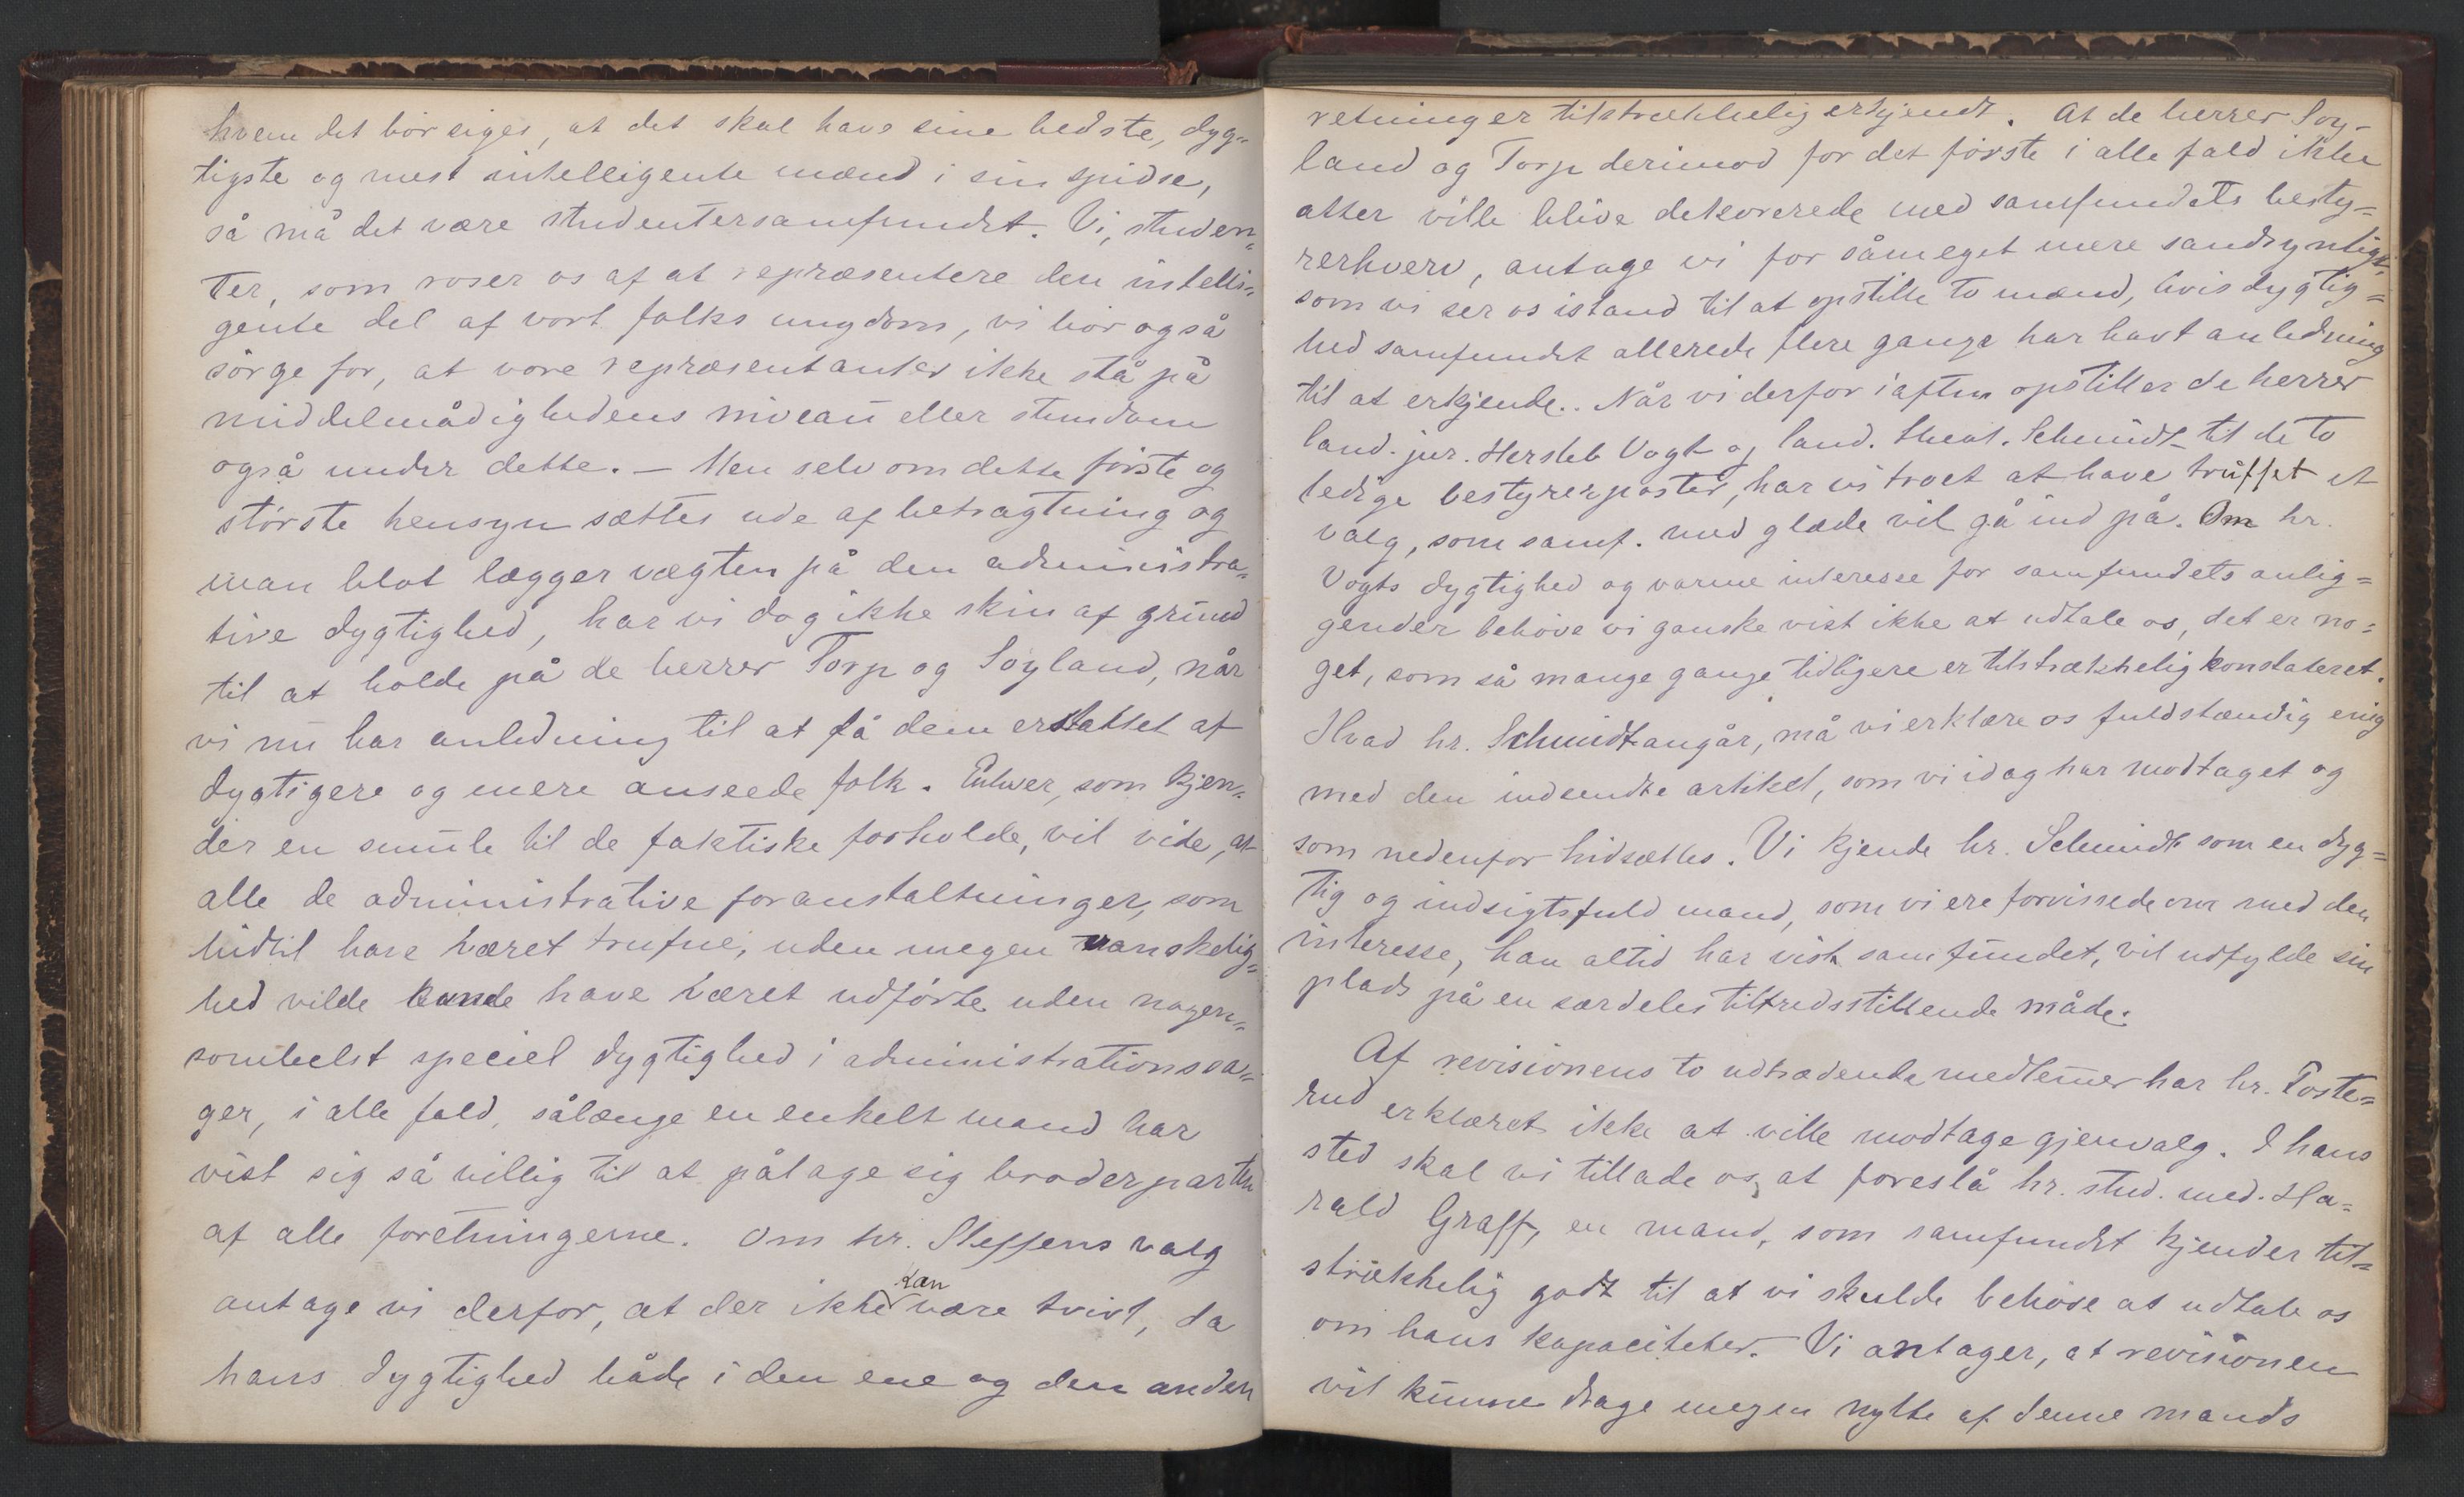 hvem det bör siges, at det skal have sine bedste, dyg=
tigste og mest intelligente mænd i sin spidse,
så må det være studentersamfundet. Vi, studen=
ter, som roser os af at repræsentere den intelli=
gente del af vort folks ungdom, vi bör også
sörge for, at vore repræsentanter ikke stå på
middelmådighedens niveau eller stundom
også under dette. – Men selv om dette förste og
störste hensyn sættes ude af betragtning og
man blot lægger vægten på den administra=
tive dygtighed, har vi dog ikke skin af grund
til at holde på de herrer Torp og Söyland, når
vi nu har anledning til at få dem erstattet af
dygtigere og mere anseede folk. Enhver, som kjen=
der en smule til de faktiske forholde, vil vide, at
alle de administrative foranstaltninger, som
hidtil have været trufne, uden megen vanskelig=
hed vilde kunde have været udförte uden nogen=
somhelst speciel dygtighed i administrationssa=
ger, i alle fald, sålænge en enkelt mand har
vist sig så villig til at påtage sig broderparten
af alle foretningerne. Om hr. Steffens valg
antage vi derfor, at der ikke kan være tvivl, da
hans dygtighed både i den ene og den anden
retninger tilstrækkelig erkjendt. At de herrer Söy-
land og Torp derimod for det förste i alle fald ikke
atter ville blive dekorerede med samfundets besty=
rerhverv, antage vi for såmeget mere sandsynligt,
som vi ser os istand til at opstille to mænd, hvis dygtig=
hed samfundet allerede flere gange har havt anledning
til at erkjende. Når vi derfor iaften opstiller de herrer
Cand. jur. Hersleb Vogt og Cand. theol. Schmidt til de to
ledige bestyrerposter, har vi troet at have truffet et
valg, som samf. med glæde vil gå ind på. Om hr.
Vogts dygtighed og varme interesse for samfundets anlig=
gender behöve vi ganske vist ikke at udtale os, det er no=
get, som så mange gange tidligere er tilstrækkelig konstateret.
Hvad hr. Schmidt angår, må vi erklære os fuldstændig enig
med den indsendte artikel, som vi idag har modtaget og
som nedenfor hidsættes. Vi kjende hr. Schmidt som en dyg=
tig og indsigtsfuld mand, som vi ere forvissede om med den
interesse, han altid har vist samfundet, vil udfylde sin
plads på en særdeles tilfredsstillende måde.
Af revisionens to udtrædende medlemer har hr. Toste=
rud erklæret ikke at ville modtage gjenvalg. I hans
sted skal vi tillade os, at foreslå hr. stud. med. Ha=
rald Graff, en mand, som samfundet kjender til=
strækkelig godt til at vi skulde behöve at udtale os
om hans kapaciteter. Vi antager, at revisionen
vil kunne drage megen nytte af denne mands